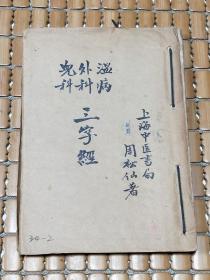 上海中医书局
周松仙著
温病
外科
児科
三字經
34-2